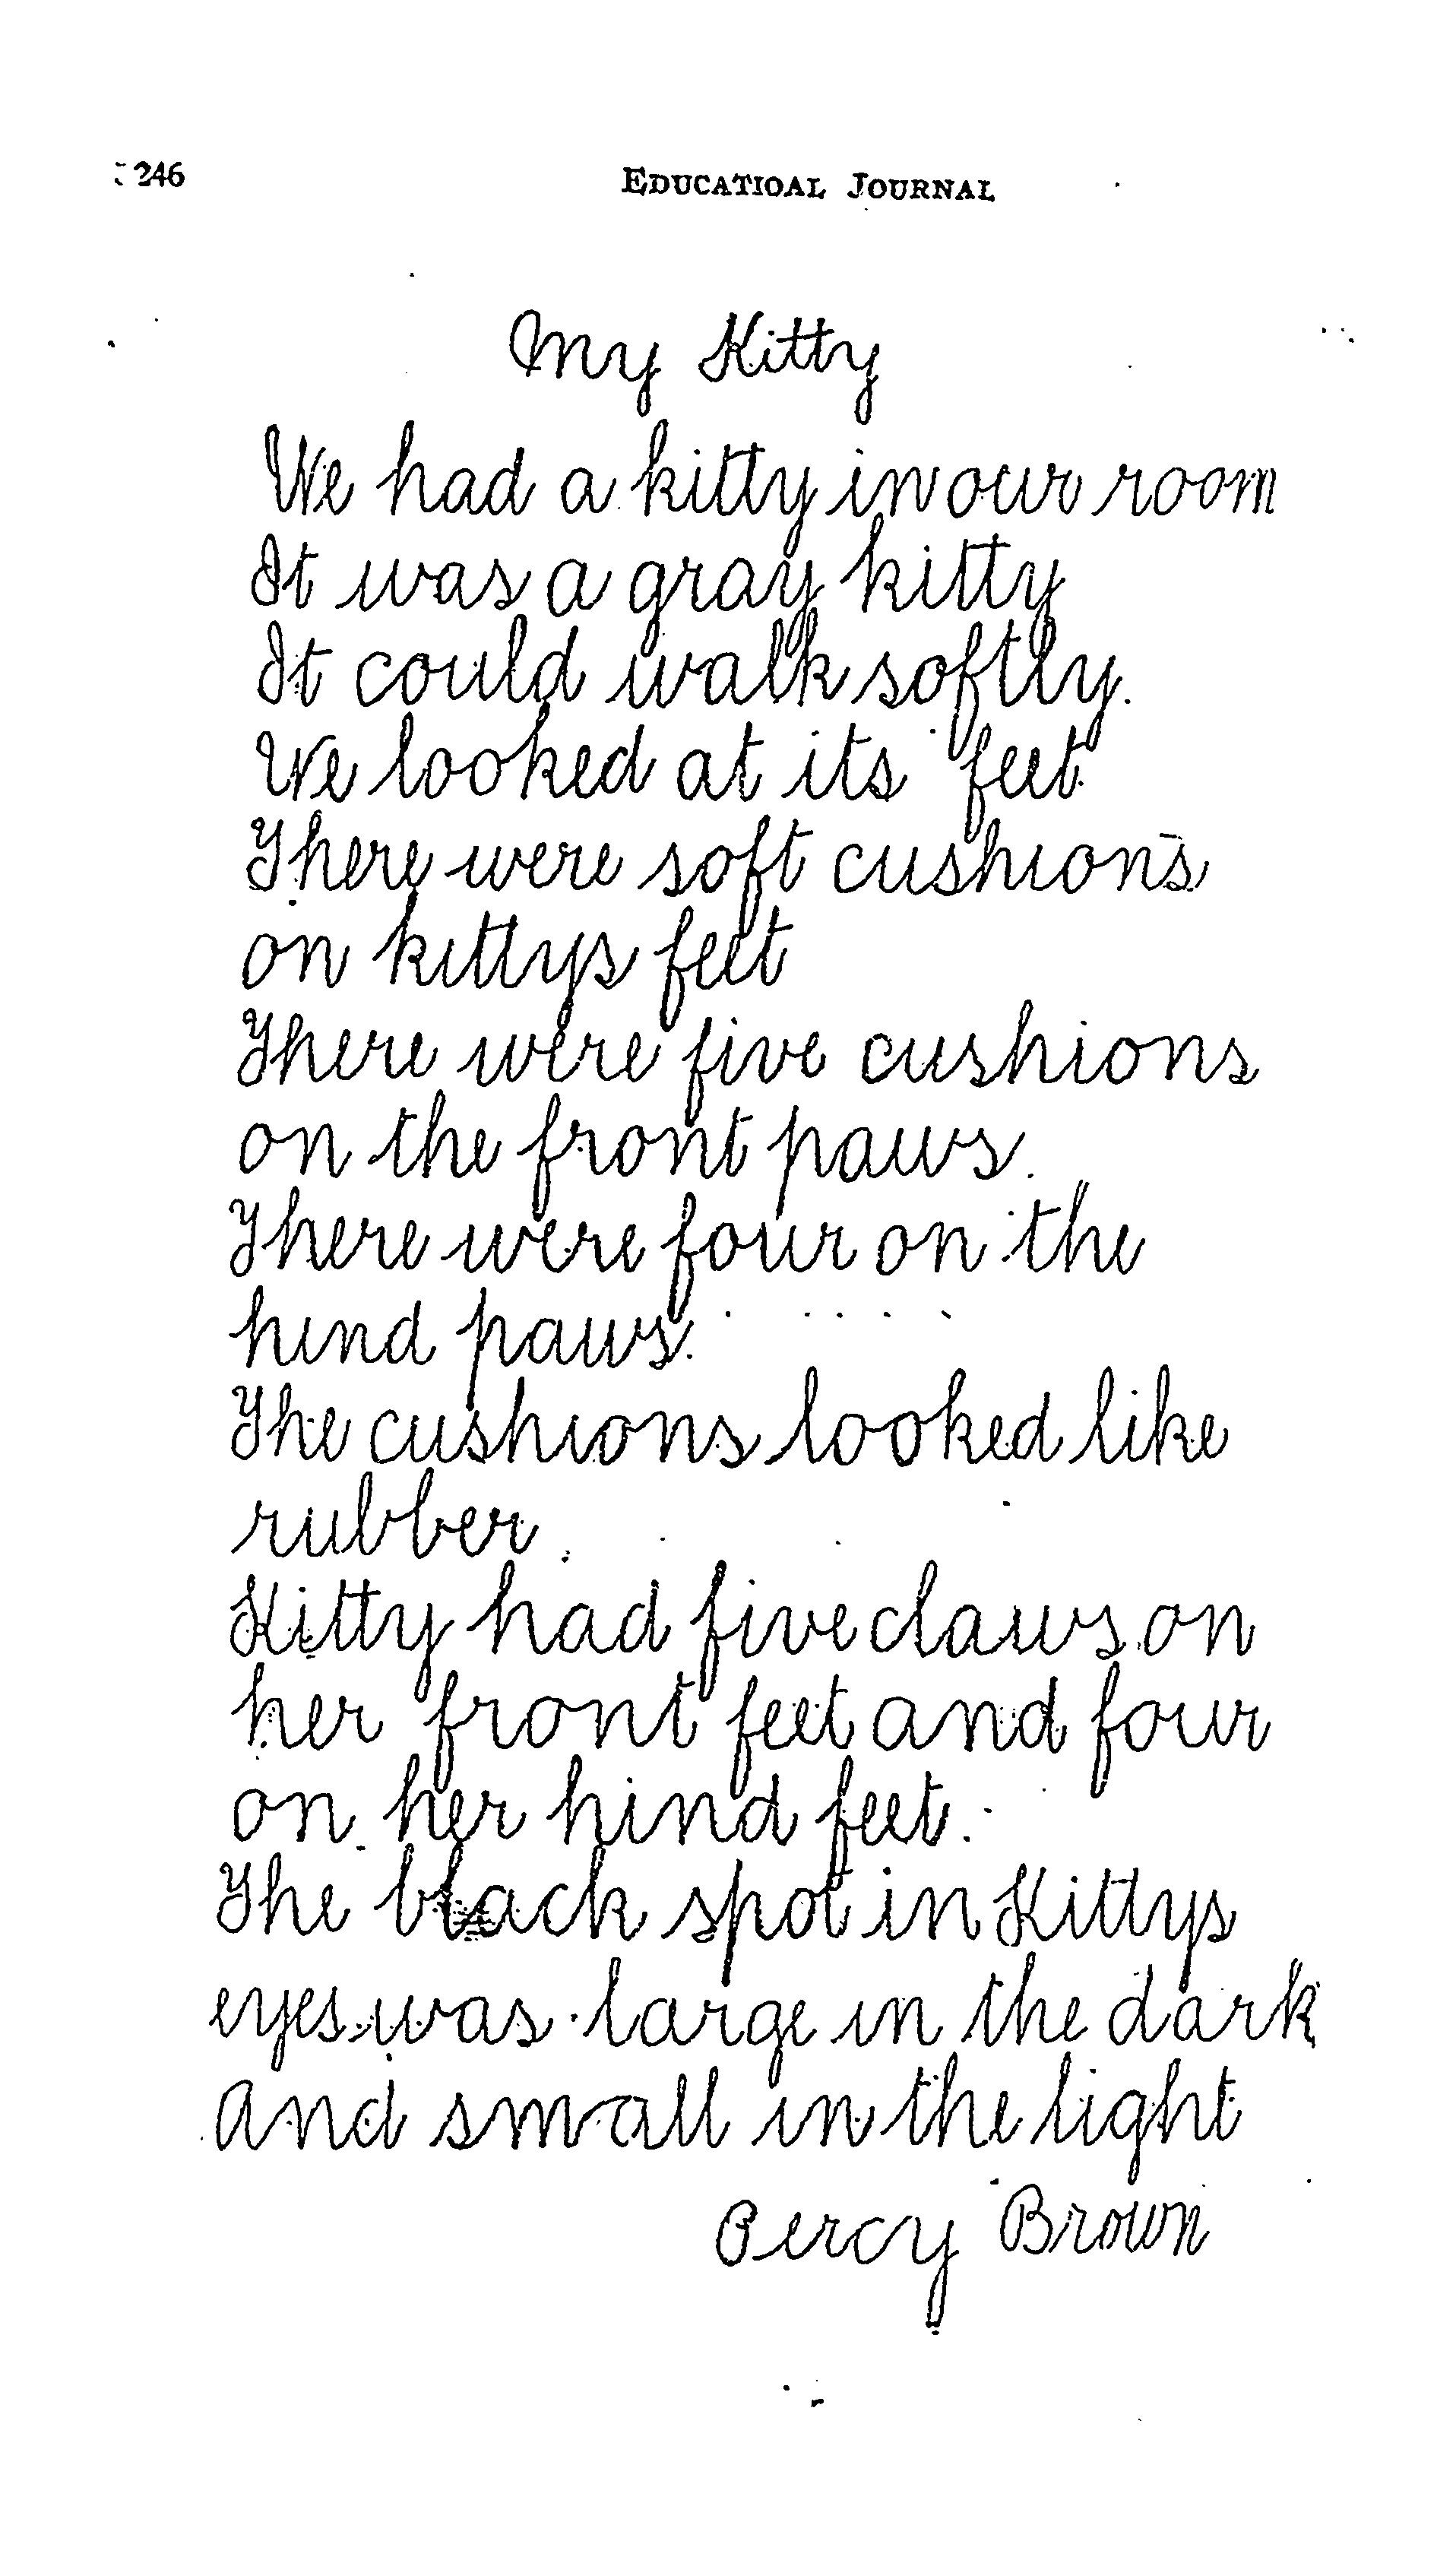 246
EDUCATIOAL JOURNAL
My Kitty
We had a kitty in our room
It was a gray kitty
It could walk softly.
We looked at its feet
There were soft cushions
on kittys feet
There were five cushions
on the front paws.
There were four on the
hind paws.
The cushions looked like
rubber.
Kitty had five claws on
her front feet and four
on her hind feet.
The black spot in Kittys
eyes was large in the dark
and small in the light
Percy Brown